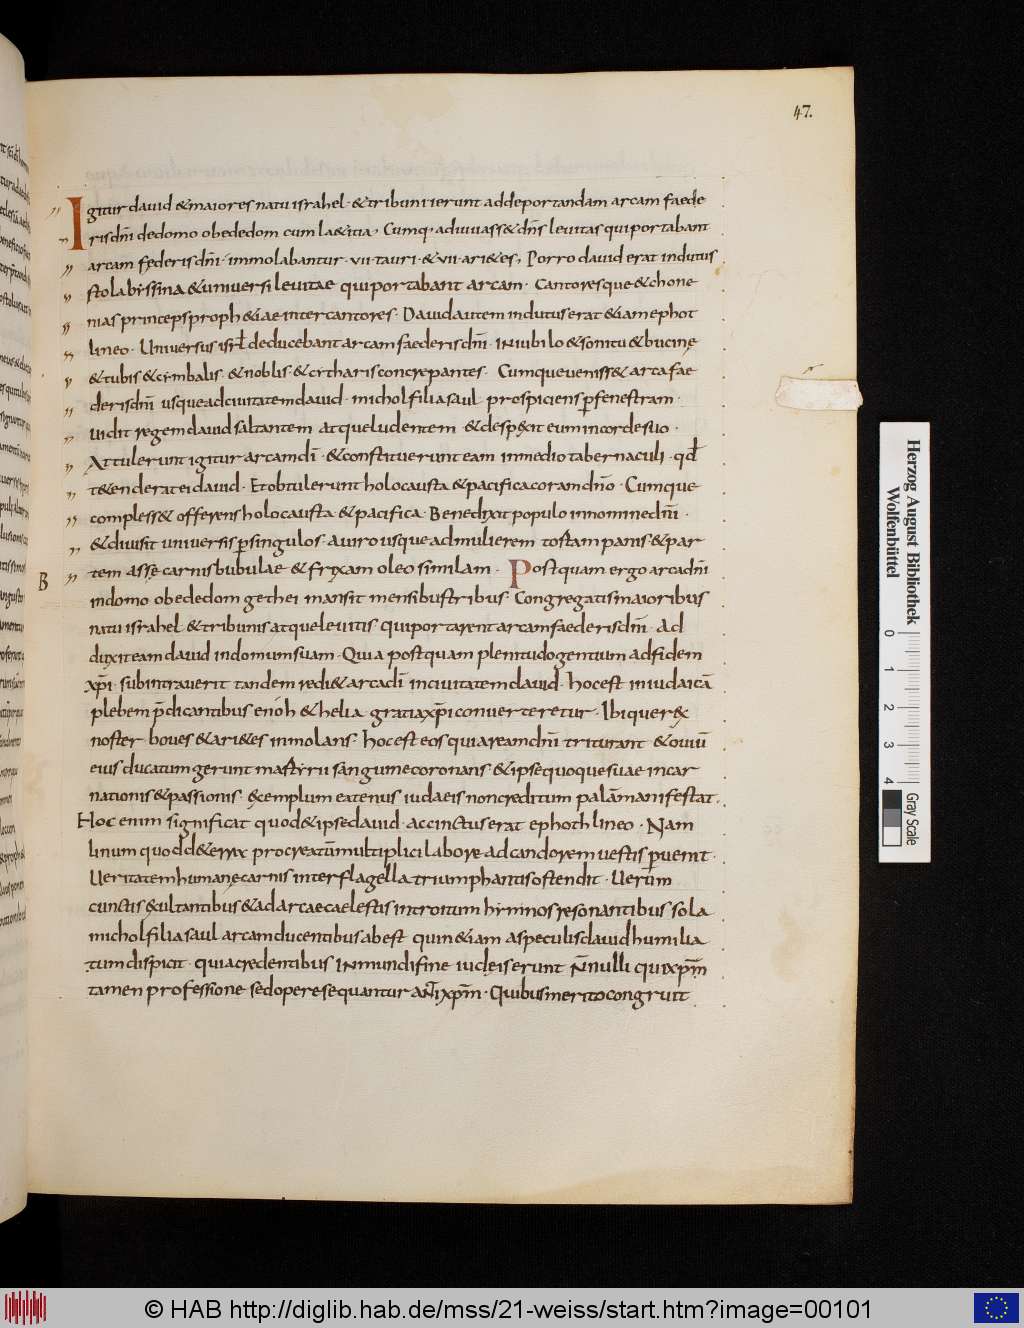 47.
Igitur dauid &maiores natu israhel · &tribuni ierunt addeportandam arcam faede
risdñi dedomo obededom cum la&itia, Cumq· adiuuass& dñs leuitas quiportabant
arcam fęderisdñi · immolabantur · vii · tauri · & vii · ari&es, Porro dauid erat indutus
stola byssina &uniuersi leuitae quiportabant arcam · Cantoresque &chone
nias princepsproph&iae intercantores · Dauid autem indutus erat &iam ephot
lineo · Uniuersus isrł deducebant arcam faederisdñi · iniubilo &sonitu &bucinę
&tubis &cymbalis · &noblis · &cytharis concrepantes · Cumque ueniss& arca fae
derisdñi usque adciuitatem dauid · michol filia saul prospiciens p fenestram ·
uidit regem dauid saltantem atque ludentem · &despęxit eum incorde suo ·
Attulerunt igitur arcam dī · &constituerunt eam inmedio tabernaculi · qđ
t&enderat ei dauid · Et obtulerunt holocausta &pacifica coram dño · Cumque
compless& offerens holocausta · &pacifica · Benedixit populo innomine dñi ·
&diuisit uniuersis p singulos · auiro usque admulierem tostam panis &par
B tem assę carnis bubulae &frixam oleo similam · Postquam ergo arca dñi
indomo obededom gethei mansit mensibus tribus · Congregatis maioribus
natu israhel &tribunis atque leuitis · quiportarent arcam faederis dñi · Ad
duxit eam dauid indomum suam · Quia postquam plenitudo gentium adfidem
xp̄i · subintrauerit tandem redi& arca dī inciuitatem dauid · hocest iniudaicā
plebem p̄dicantibus enoh &helia gratia xp̄i conuerteretur · Ibique r&
noster boues &ari&es inmolans · hocest eos qui aream dñi triturant &ouiū
eius ducatum gerunt martyrii sanguine coronans &ipse quoque suae incar
nationis &passionis · exemplum eatenus iudaeis noncreditum palā manifestat ·
Hoc enim significat quod &ipse dauid · accinctus erat ephoth lineo · Nam
linum quod d&erra procreatū multiplici labore adcandorem uestis puenit ·
Ueritatem humanę carnis inter flagella triumphantis ostendit · Uerum
cunctis exultantibus &ad arcae caelestis introitum hymnos resonantibus sola
michol filia saul arcam ducentibus abest quin &iam aspeculis dauid humilia
tum dispicit · quia credentibus inmundi fine iudeis erunt n̄nulli qui xpm̄
tamen professione sed opere sequantur antixpm̄ · Quibus merito congruit
Herzog August Bibliothek
Wolfenbüttel
0 1 2 3 4
Gray Scale
© HAB http://diglib.hab.de/mss/21-weiss/start.htm?image=00101